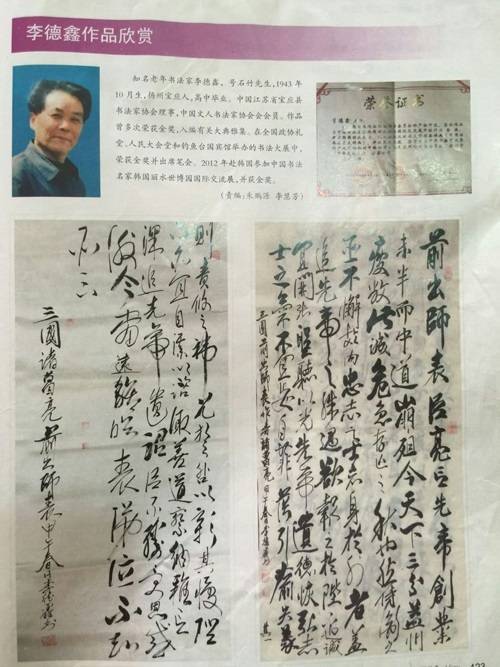 李德鑫作品欣赏
知名老年书法家李德鑫，号石竹先生，1943年
10月生，扬州宝应人，高中毕业。中国江苏省宝应县
书法家协会理事，中国文人书法家协会会员。作品
曾多次荣获金奖，入编有关大典雅集。在全国政协礼
堂、人民大会堂和钓鱼台国宾馆举办的书法大展中，
荣获金奖并出席笔会。2012年赴韩国参加中国书法
名家韩国丽水世博园国际交流展，并获金奖。
（责编：朱鹏源 李慧芳）
荣誉证书
前出師表臣亮言先帝創業
未半而中道崩殂今天下三分益州
疲敝此誠危急存亡之秋也然侍衛之
臣不懈於内忠志之士忘身於外者蓋
追先帝之殊遇欲報之於陛下也誠
宜開張聖聽以光先帝遺德恢弘志
士之氣不宜妄自菲薄引喻失義
三國前出師表作者諸葛亮
其一
則責攸之禕允等之咎以彰其慢陛
下亦宜自謀以諮諏善道察納雅言
深追先帝遺詔臣不勝受恩感
激今當遠離臨表涕泣不知
所云
三國諸葛亮前出師表